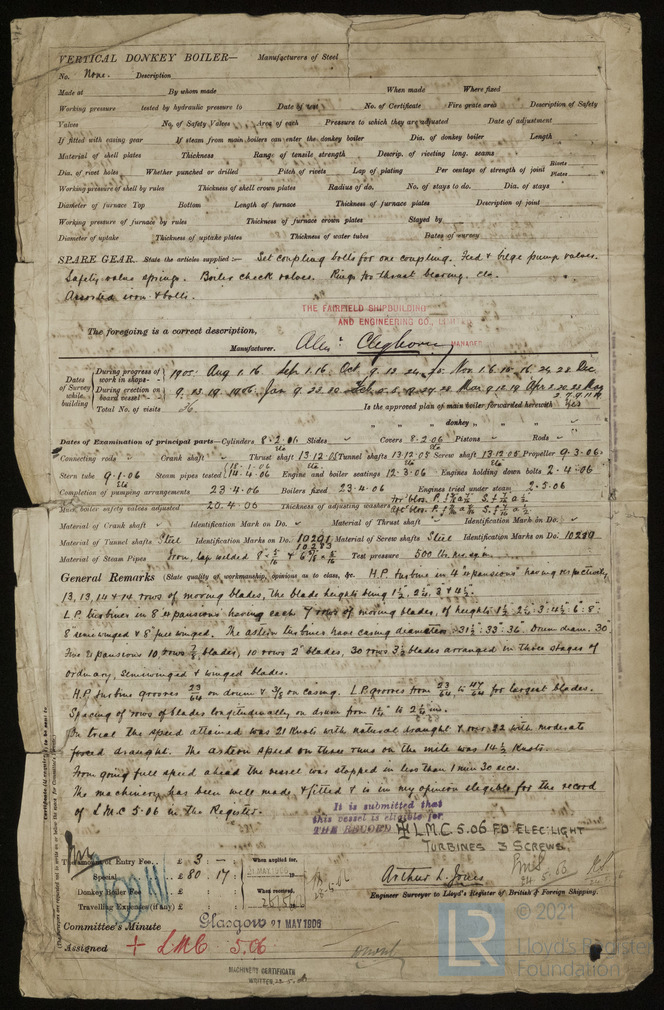 VERTICAL DONKEY BOILER— Manufacturers of Steel
No. None. Description
Made at By whom made When made Where fixed
Working pressure tested by hydraulic pressure to Date of test No. of Certificate Fire grate area Description of Safety
Valves No. of Safety Valves Area of each Pressure to which they are adjusted Date of adjustment
If fitted with easing gear If steam from main boilers can enter the donkey boiler Dia. of donkey boiler Length
Material of shell plates Thickness Range of tensile strength Descrip. of riveting long. seams
Dia. of rivet holes Whether punched or drilled Pitch of rivets Lap of plating Per centage of strength of joint Rivets Plates
Working pressure of shell by rules Thickness of shell crown plates Radius of do. No. of stays to do. Dia. of stays
Diameter of furnace Top Bottom Length of furnace Thickness of furnace plates Description of joint
Working pressure of furnace by rules Thickness of furnace crown plates Stayed by
Diameter of uptake Thickness of uptake plates Thickness of water tubes Dates of survey
SPARE GEAR. State the articles supplied:— Set coupling bolts for one coupling. Feed & bilge pump valves.
Safety valve springs. Boiler check valves. Rings for thrust bearing, &c.
Assorted iron & bolts.
THE FAIRFIELD SHIPBUILDING
AND ENGINEERING CO., LIMITED
The foregoing is a correct description,
Manufacturer. Alexr Cleghorn MANAGER
Dates of Survey while building
During progress of work in shops - - 1905: Aug 1. 16. Sep. 1. 16. Oct. 9. 13. 24. 30. Nov. 1. 6. 10. 16. 24. 28. Dec.
During erection on board vessel - - 9. 13. 19. 1906. Jan 9. 23. Feb. Mar 9. 12. 19. Apr 2. 20. 23. May
Total No. of visits Is the approved plan of main boiler forwarded herewith Yes
" " " donkey " " "
Dates of Examination of principal parts—Cylinders 8-2-06 Slides Covers 8-2-06 Pistons Rods
Connecting rods Crank shaft Thrust shaft 13-12-05 Tunnel shafts 13-12-05 Screw shaft 13-12-05 Propeller 9-3-06
Stern tube 9-1-06 Steam pipes tested 14-4-06 Engine and boiler seatings 12-3-06 Engines holding down bolts 2-4-06
Completion of pumping arrangements 23-4-06 Boilers fixed 23-4-06 Engines tried under steam 2-5-06
Main boiler safety valves adjusted 20-4-06 Thickness of adjusting washers
Material of Crank shaft Identification Mark on Do. Material of Thrust shaft Identification Mark on Do.
Material of Tunnel shafts Steel Identification Marks on Do. 10291 10283 Material of Screw shafts Steel Identification Marks on Do. 10289
Material of Steam Pipes Iron, lap welded Test pressure 500 lbs. per sq. in.
General Remarks (State quality of workmanship, opinions as to class, &c. H.P. turbine in 4 expansions having respectively
13, 13, 14 & 14 rows of moving blades, the blade heights being 1½, 2¼, 3 & 4½.
L.P. turbines in 8 expansions having each 7 rows of moving blades, of heights 1½" 2¼" 3" 4½" 6" 8"
8" semi winged & 8" full winged. The astern turbines have casing diameters 31½" 33" 36" Drum diam. 30"
blades, 10 rows 2" blades, 30 rows 3½ blades arranged in three stages of
ordinary, semi winged & winged blades.
H.P. turbine grooves 23/64 on drum & 3/8 on casing. L.P. grooves from 23/64 to 47/64 for largest blades.
Spacing of rows of blades longitudinally on drum from
On trial the speed attained was 21 Knots with natural draught & over 22 with moderate
forced draught. The astern speed on three runs on the mile was 14½ Knots.
From going full speed ahead the vessel was stopped in less than 1 min 30 secs.
The machinery has been well made & fitted & is in my opinion eligible for the record
of L.M.C 5.06 in the Register.
It is submitted that
this vessel is eligible for
THE RECORD + L.M.C. 5.06 F.D. ELEC. LIGHT
TURBINES 3 SCREWS.
The amount of Entry Fee . . £ 3 : — : When applied for,
Special . . . £ 80 : 17 : 21 MAY 1906
Donkey Boiler Fee . . . £ : : When received,
Travelling Expenses (if any) £ : :
Arthur L. Jones
Engineer Surveyor to Lloyd's Register of British & Foreign Shipping.
Committee's Minute Glasgow 21 MAY 1906
Assigned + LMC 5.06
MACHINERY CERTIFICATE
WRITTEN
© 2021
LR
Lloyd's Register
Foundation